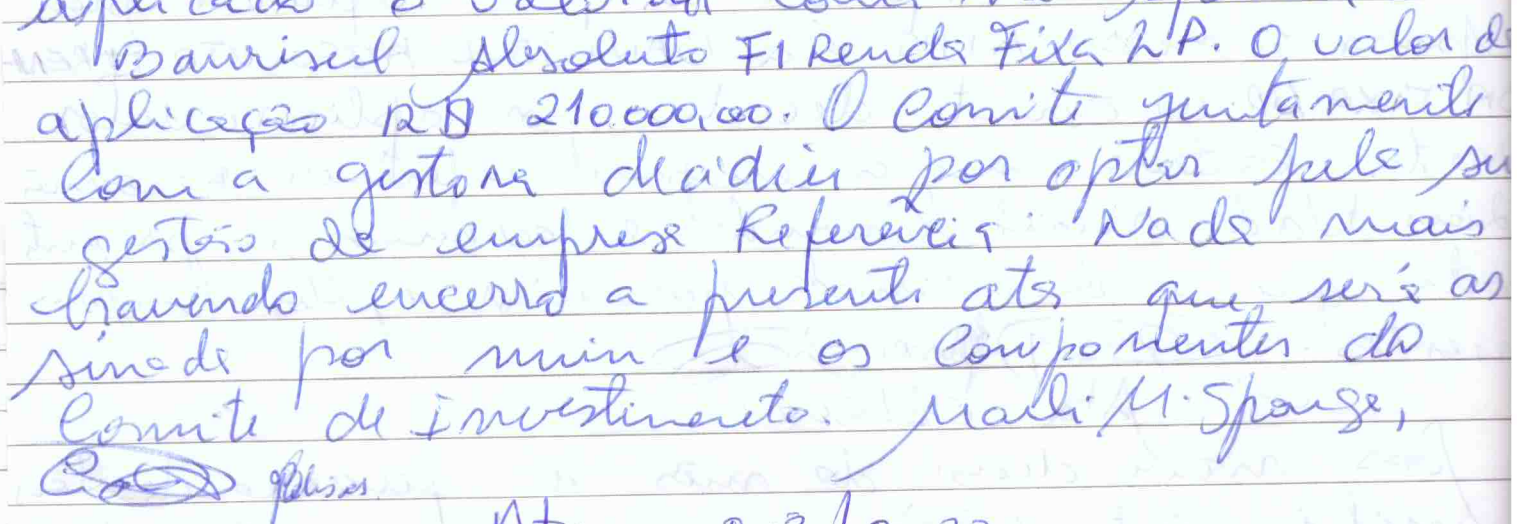 aplicado o valor
Banrisul Absoluto FI Renda Fixa LP. O valor da
aplicação R$ 210.000,00. O Comite juntamente
com a gestora decidiu por optar pela su
gestão da empresa Referência. Nada mais
havendo encerro a presente ata que será as
sinada por mim e os componentes do
Comite de Investimento. Marli M. Sponge,